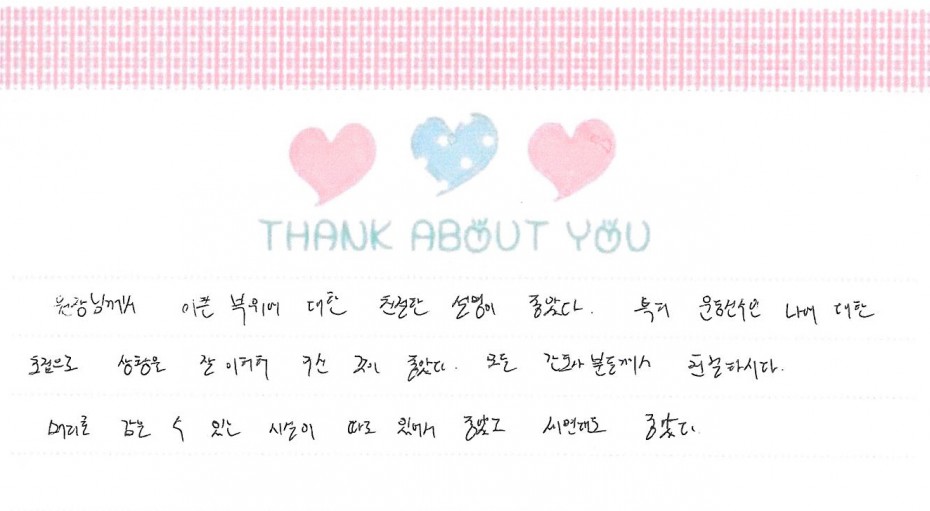 THANK ABOUT YOU
원장님께서 아픈 부위에 대한 친절한 설명이 좋았다. 특히 운동선수인 나에 대한
초점으로 상황을 잘 이해해 주신 것이 좋았다. 모든 간호사 분들께서 친절하시다.
머리를 감는 수 있는 시설이 따로 있어서 좋았고 세면대도 좋았다.